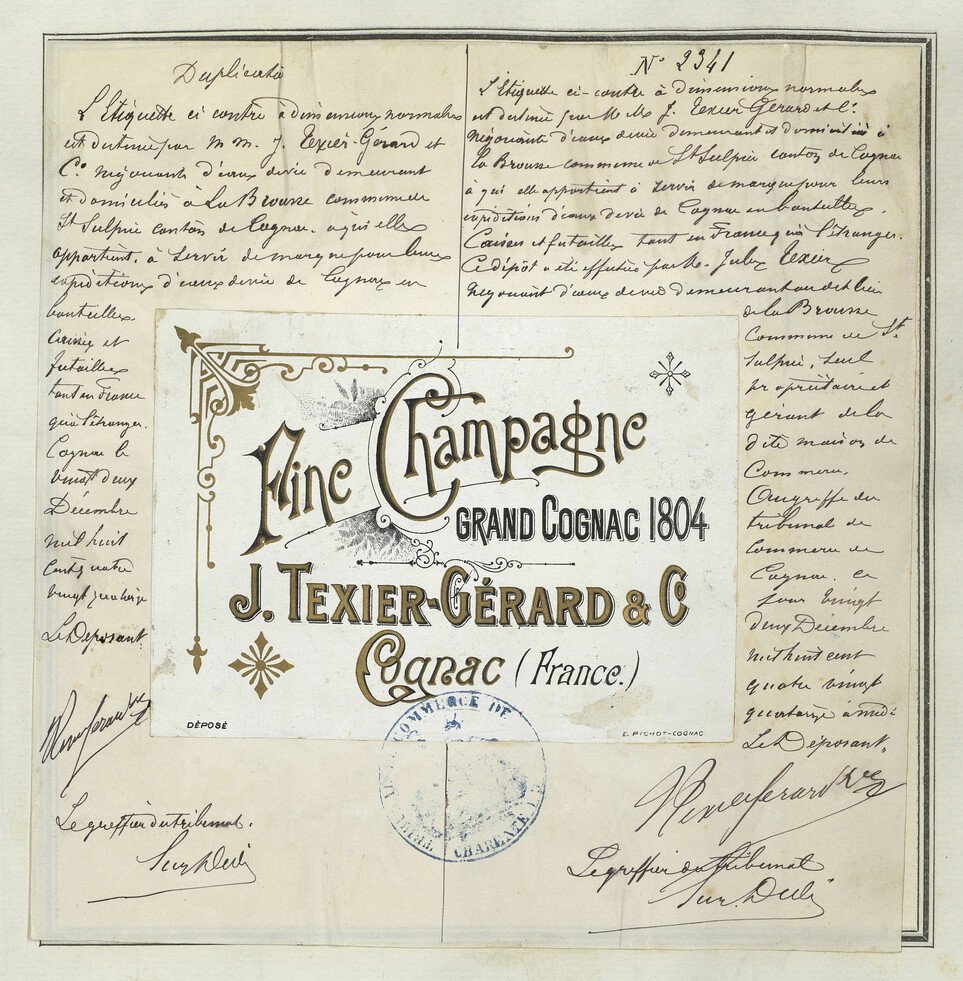 Duplicata
L'Étiquette ci contre à dimensions normales
est destinée par M M. J. Texier-Gérard et
Cie négociants d'eaux de vie demeurant
et domiciliés à La Brousse commune de
St Sulpice canton de Cognac. à qui elle
appartient. à servir de marque pour leurs
expéditions d'eaux de vie de Cognac en
bouteilles.
caisses et
futailles
tant en France
qu'à l'étranger.
Cognac le
vingt deux
Décembre
mil huit
cent quatre
vingt quatorze
Le Déposant
Le greffier du tribunal.
No 2341
L'Étiquette ci-contre à dimensions normales
est destinée par M M. J. Texier Gérard et Cie
négociants d'eaux de vie demeurant et domiciliés à
la Brousse commune de St Sulpice canton de Cognac
à qui elle appartient à servir de marque pour leurs
expéditions d'eaux de vie de Cognac en bouteilles.
Caisses et futailles tant en France qu'à l'étranger.
Ce dépôt a été effectué par M. Jules Texier
négociant d'eaux de vie demeurant au dit lieu
de la Brousse
Commune de St
Sulpice, seul
propriétaire et
gérant de la
dite maison de
Commerce.
Au greffe du
tribunal de
Commerce de
Cognac. ce
jour vingt
deux Décembre
mil huit cent
quatre vingt
quatorze à midi
Le Déposant.
Le greffier du tribunal
Fine Champagne
GRAND COGNAC 1804
J. TEXIER-GÉRARD & Co
Cognac (France.)
DÉPOSÉ
E. PICHOT-COGNAC
COMMERCE DE
CHARENTE